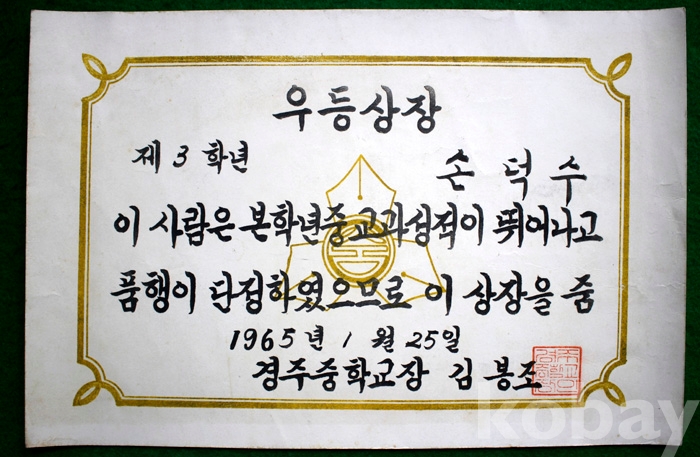 우등상장
제 3 학년
손 덕 수
이 사람은 본학년중교과성적이 뛰어나고
품행이 단정하였으므로 이 상장을 줌
1965년 1 월 25일
경주중학교장 김 봉 조
kobay